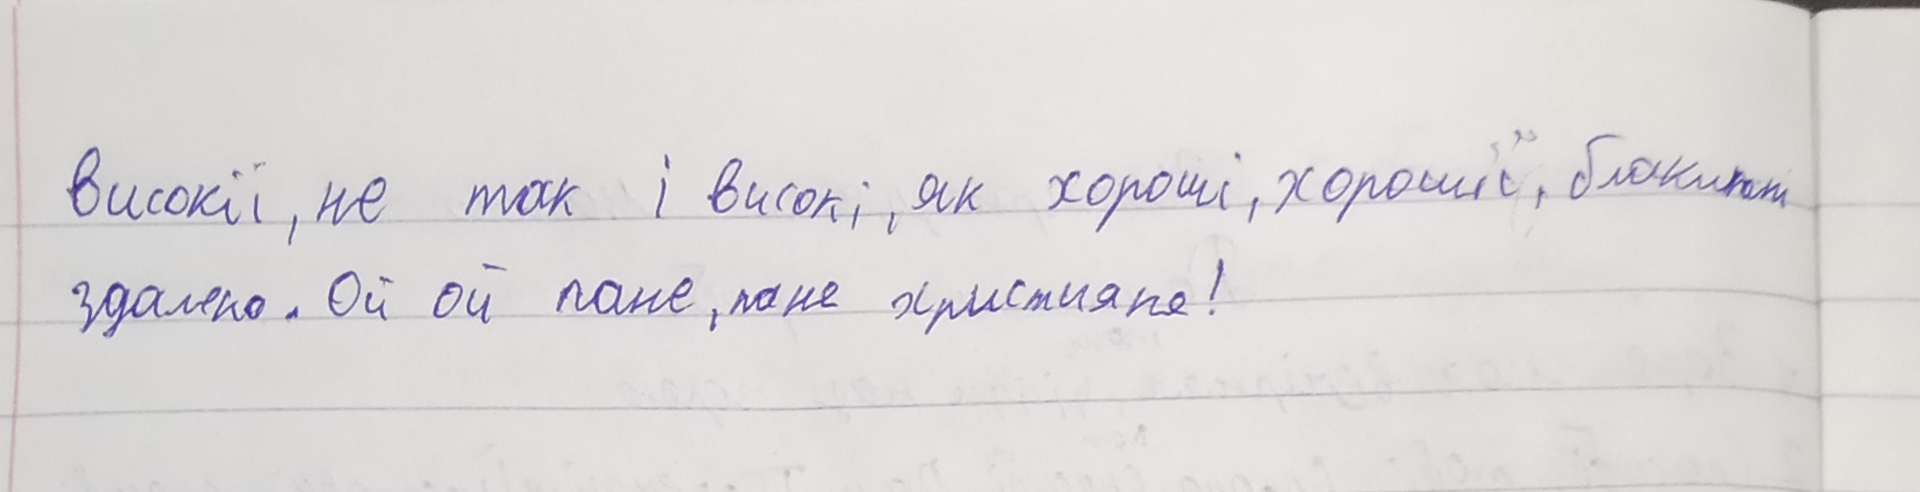 високії, не так і високі, як хороші, хорошії, блакитні
здалека. Ой ой пане, пане християне!